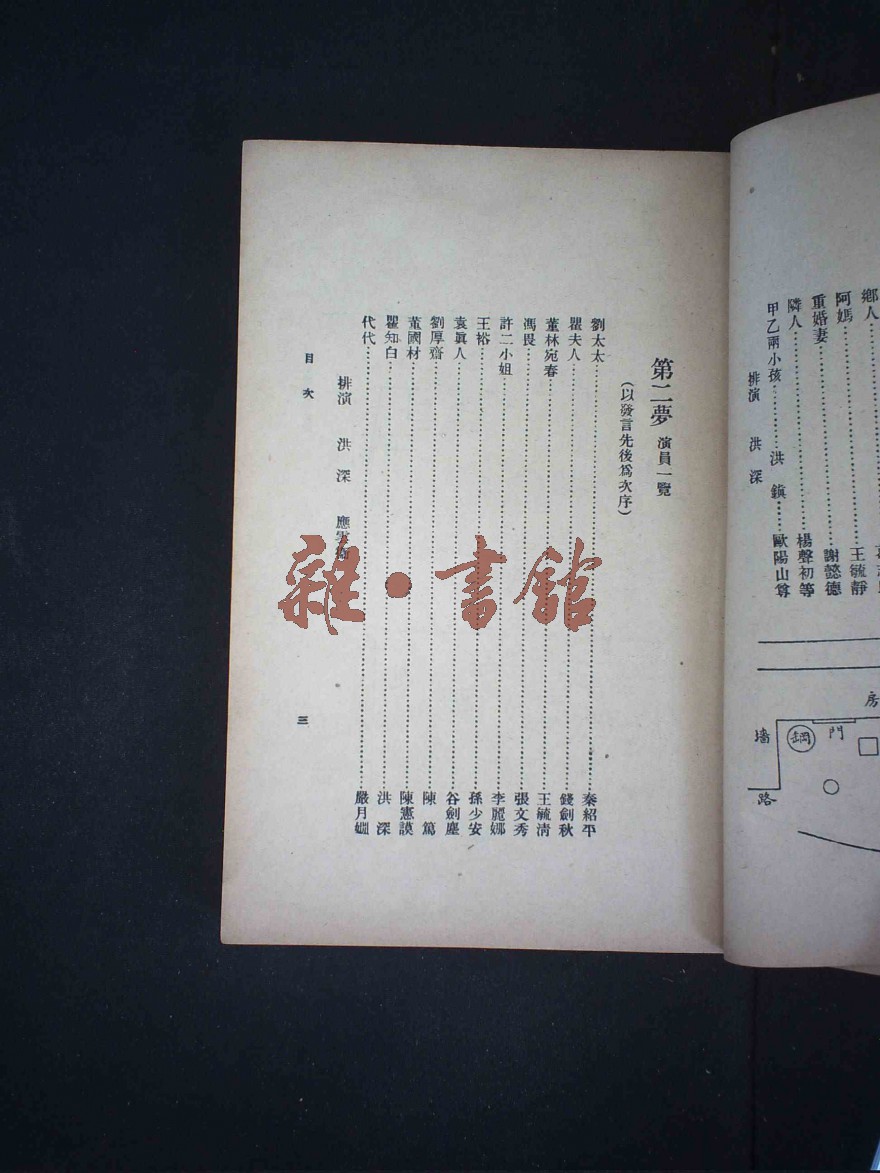 鄉人
阿媽……王毓靜
重婚妻……謝懿德
隣人……楊聲初等
甲乙兩小孩……洪鎭……歐陽山尊
排演 洪深
房
墻
鋼
門
路
第二夢 演員一覽
(以發言先後爲次序)
劉太太……秦紹平
瞿夫人……錢劍秋
董林宛春……王毓清
馮畏……張文秀
許二小姐……李麗娜
王裕……孫少安
袁眞人……谷劍塵
劉厚齋……陳篤
董國材……陳憲謨
瞿知白……洪深
代代……嚴月嫻
排演 洪深 應雲衞
目次
三
雜·書館